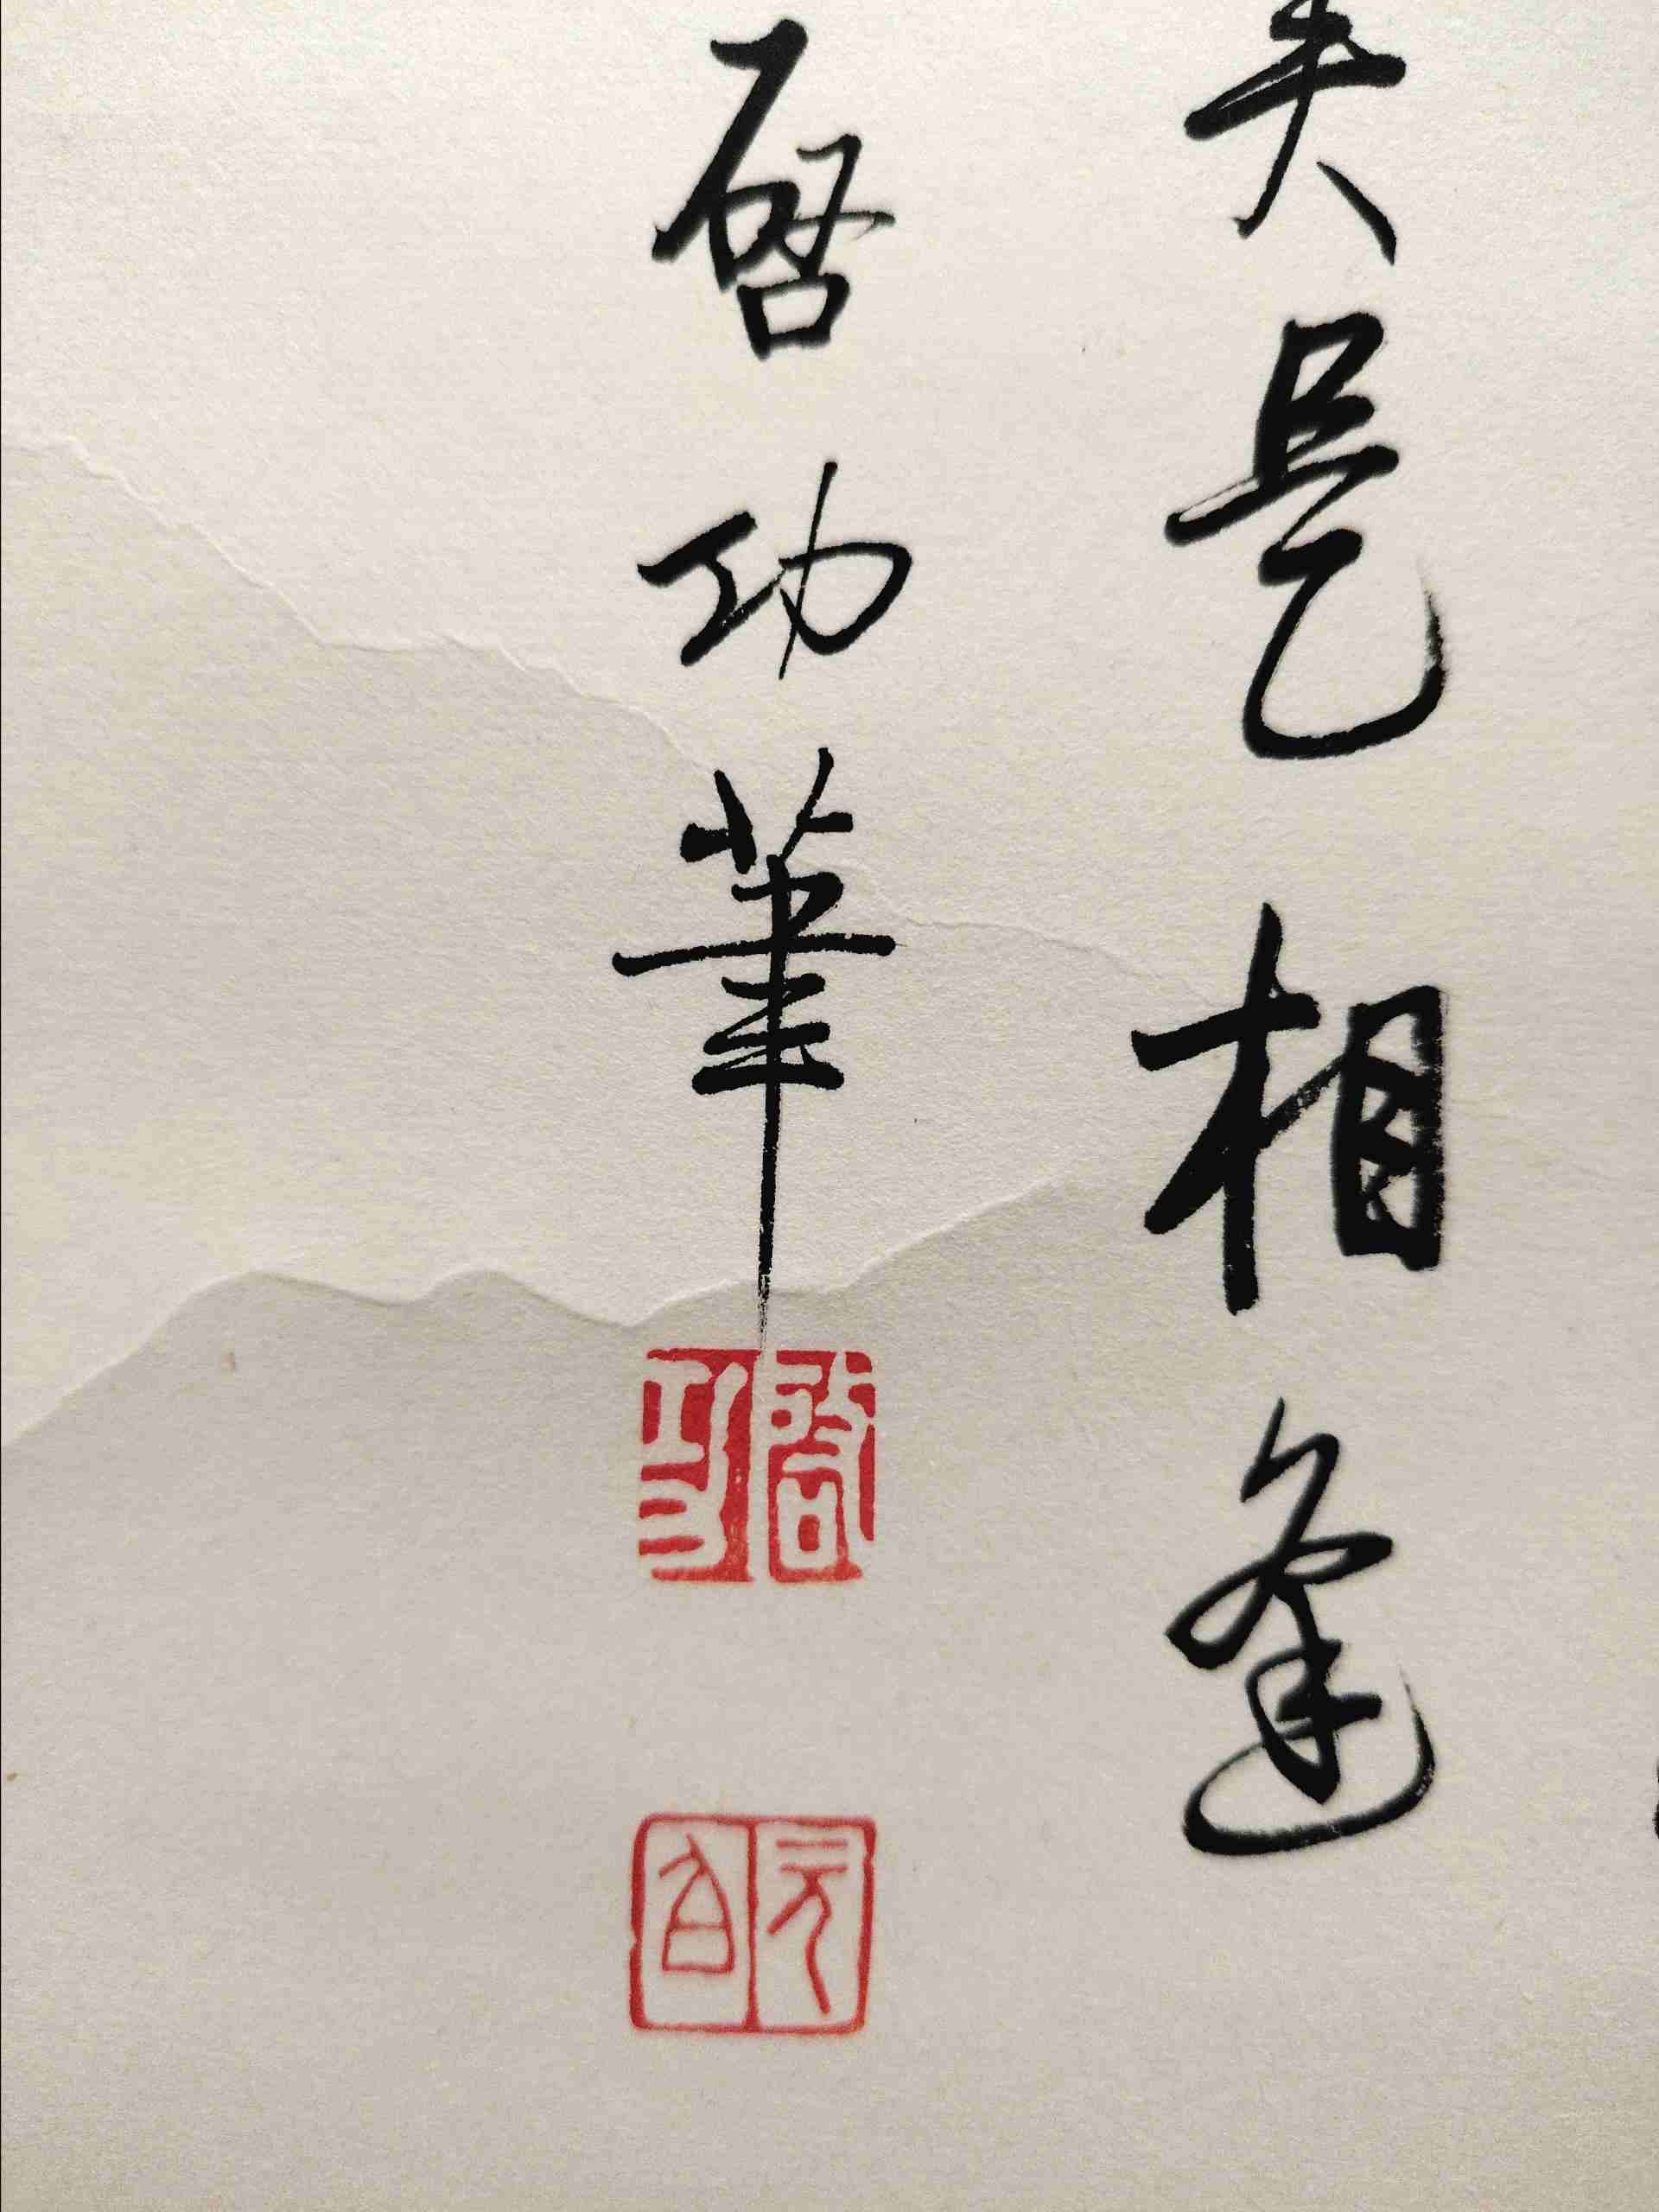 美是相逢
啓功筆
啓功
元白